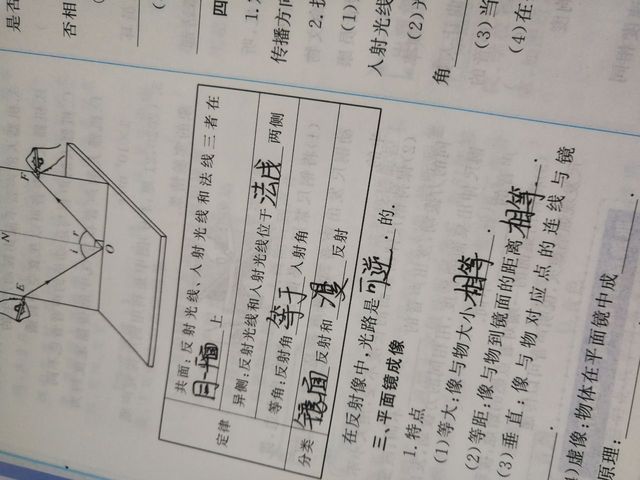 是否
否相
四
1.
传播方向
2.
(1)
入射光线
(2)
角
(3)当
(4)在
F
N
r
i
O
E
定律
共面:反射光线、入射光线和法线三者在
同一平面上
异侧:反射光线和入射光线位于法线两侧
等角:反射角等于入射角
分类
镜面反射和漫反射
在反射像中,光路是可逆的.
三、平面镜成像
1.特点
(1)等大:像与物大小相等.
(2)等距:像与物到镜面的距离相等.
(3)垂直:像与物对应点的连线与镜
)虚像:物体在平面镜中成
原理: